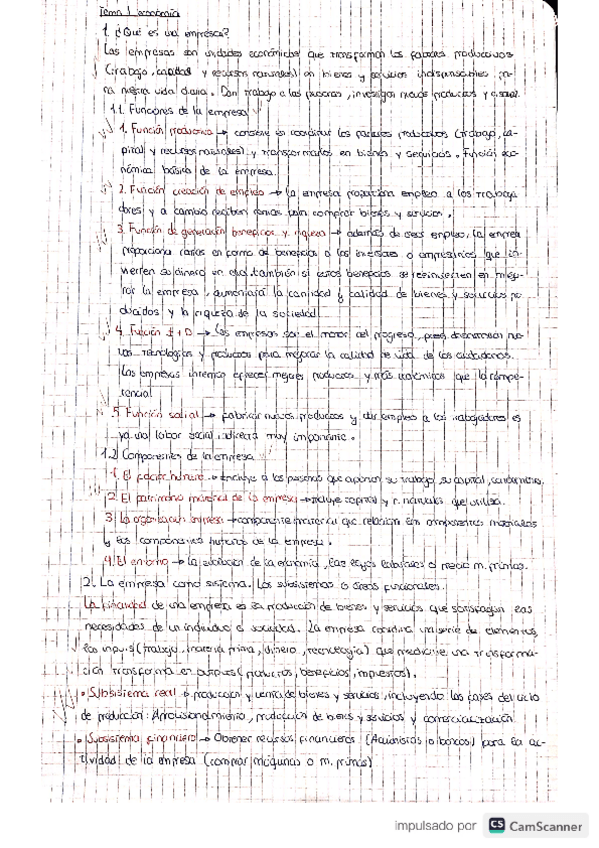 Tema 1 economía
1. ¿Qué es una empresa?
Las empresas son unidades económicas que transforman los factores productivos
(trabajo, capital y recursos naturales) en bienes y servicios indispensables pa-
ra nuestra vida diaria. Dan trabajo a las personas, investigan nuevos productos y
1.1. Funciones de la empresa
1. Función productiva → consiste en coordinar los factores productivos (trabajo, ca-
pital y recursos naturales) y transformarlos en bienes y servicios. Función eco-
nómica básica de la empresa.
2. Función creación de empleo → La empresa proporciona empleo a los trabaja
dores y a cambio reciben rentas para comprar bienes y servicios.
3. Función de generación beneficios y riqueza → además de crear empleo, la empresa
proporciona rentas en forma de beneficios a los inversores o empresarios que in-
vierten su dinero en ella también si estos beneficios se reinvierten en mejo-
rar la empresa, aumentará la cantidad y calidad de bienes y servicios pro
ducidos y la riqueza de la sociedad.
4. Función I + D → Las empresas son el motor del progreso, pues desarrollan nue-
vas tecnologías y productos para mejorar la calidad de vida de los ciudadanos.
Las empresas intentan ofrecer mejores productos y más económicos que la compe-
tencia.
5. Función social → fabricar nuevos productos y dar empleo a los trabajadores es
ya una labor social directa muy importante.
1.2 Componentes de la empresa
1. El factor humano → incluye a las personas que aportan su trabajo, su capital,
2. El patrimonio material de la empresa → incluye capital y r. naturales que utiliza.
3. La organización empresa → componente inmaterial que relaciona los componentes materiales
y los componentes humanos de la empresa.
4. El entorno → la evolución de la economía, las leyes laborales o precio m. primas.
2. La empresa como sistema. Los subsistemas o áreas funcionales.
La finalidad de una empresa es la producción de bienes y servicios que satisfagan las
necesidades de un individuo o sociedad. La empresa coordina una serie de elementos,
los inputs (trabajo, materia prima, dinero, tecnología) que mediante una transforma-
ción transforma en outputs (productos, beneficios, impuestos).
• Subsistema real → producción y venta de bienes y servicios, incluyendo las fases del ciclo
de producción: Aprovisionamiento, producción de bienes y servicios y comercialización
• Subsistema financiero → Obtener recursos financieros (Accionistas o bancos) para la ac-
tividad de la empresa (comprar máquinas o m. primas)
impulsado por CS CamScanner